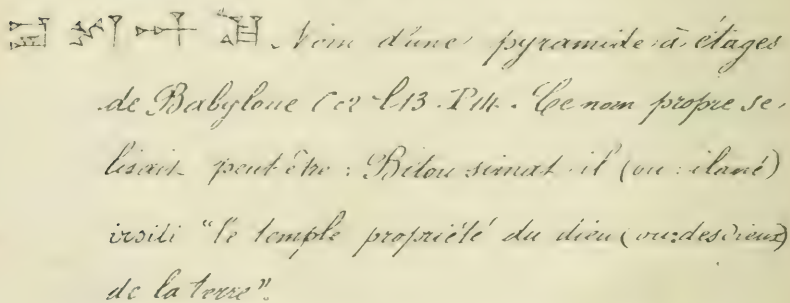 Nom d'une pyramide à étages
de Babylone C c2 l 13. P
Ce nom propre se
lisait peut être : Bitou simat il (ou : ilané)
irsiti "le temple propriété du dieu (ou: des dieux)
de la terre".